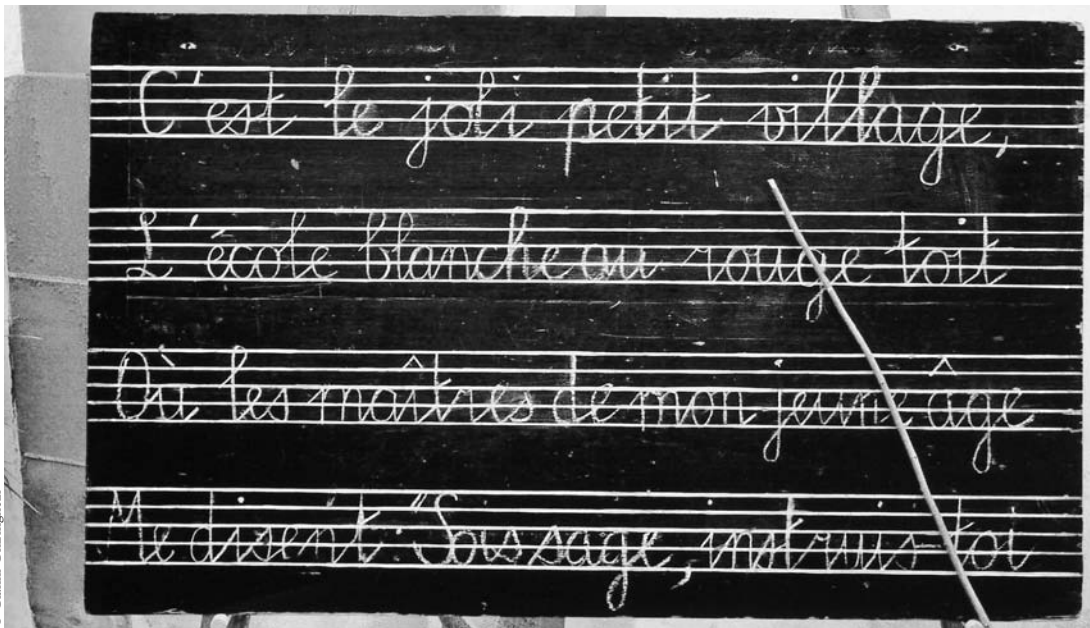 C'est le joli petit village,
L'école blanche au rouge toit
Où les maîtres de mon jeune âge
Me disent : "Sois sage, instruis-toi